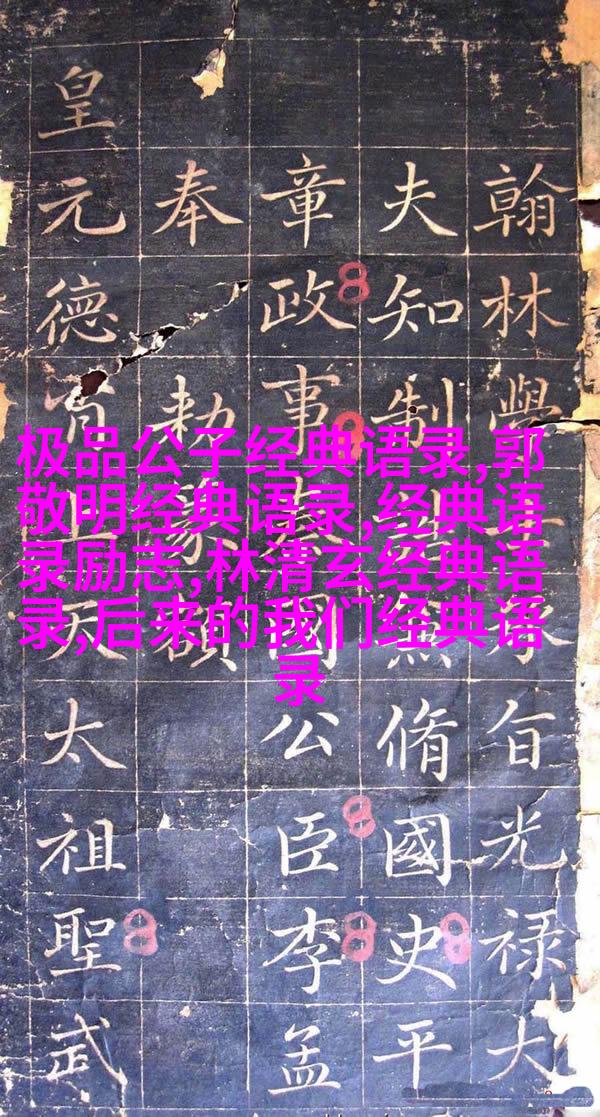 翰林學士承旨光禄大
夫知制誥兼脩國史平
章政事國公臣李孟
奉勅篆額
皇
元德天太祖聖武
极品公子经典语录,郭
敬明经典语录,经典语
录励志,林清玄经典语
录,后来的我们经典语
录